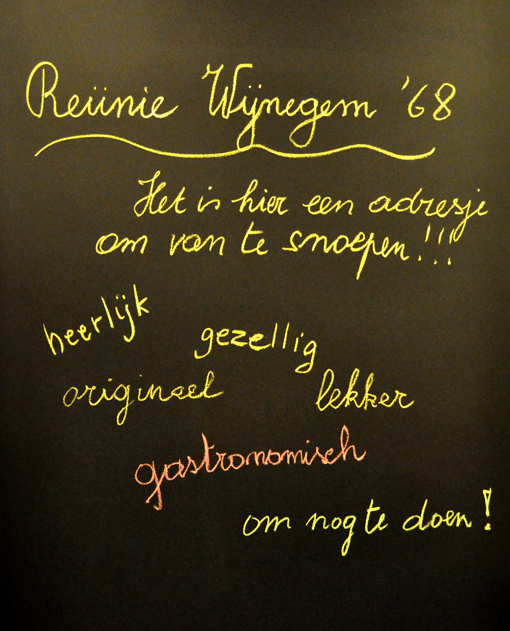 Reünie Wijnegem '68
Het is hier een adresje
om van te snoepen!!!
heerlijk
gezellig
origineel
lekker
gastronomisch
om nog te doen!